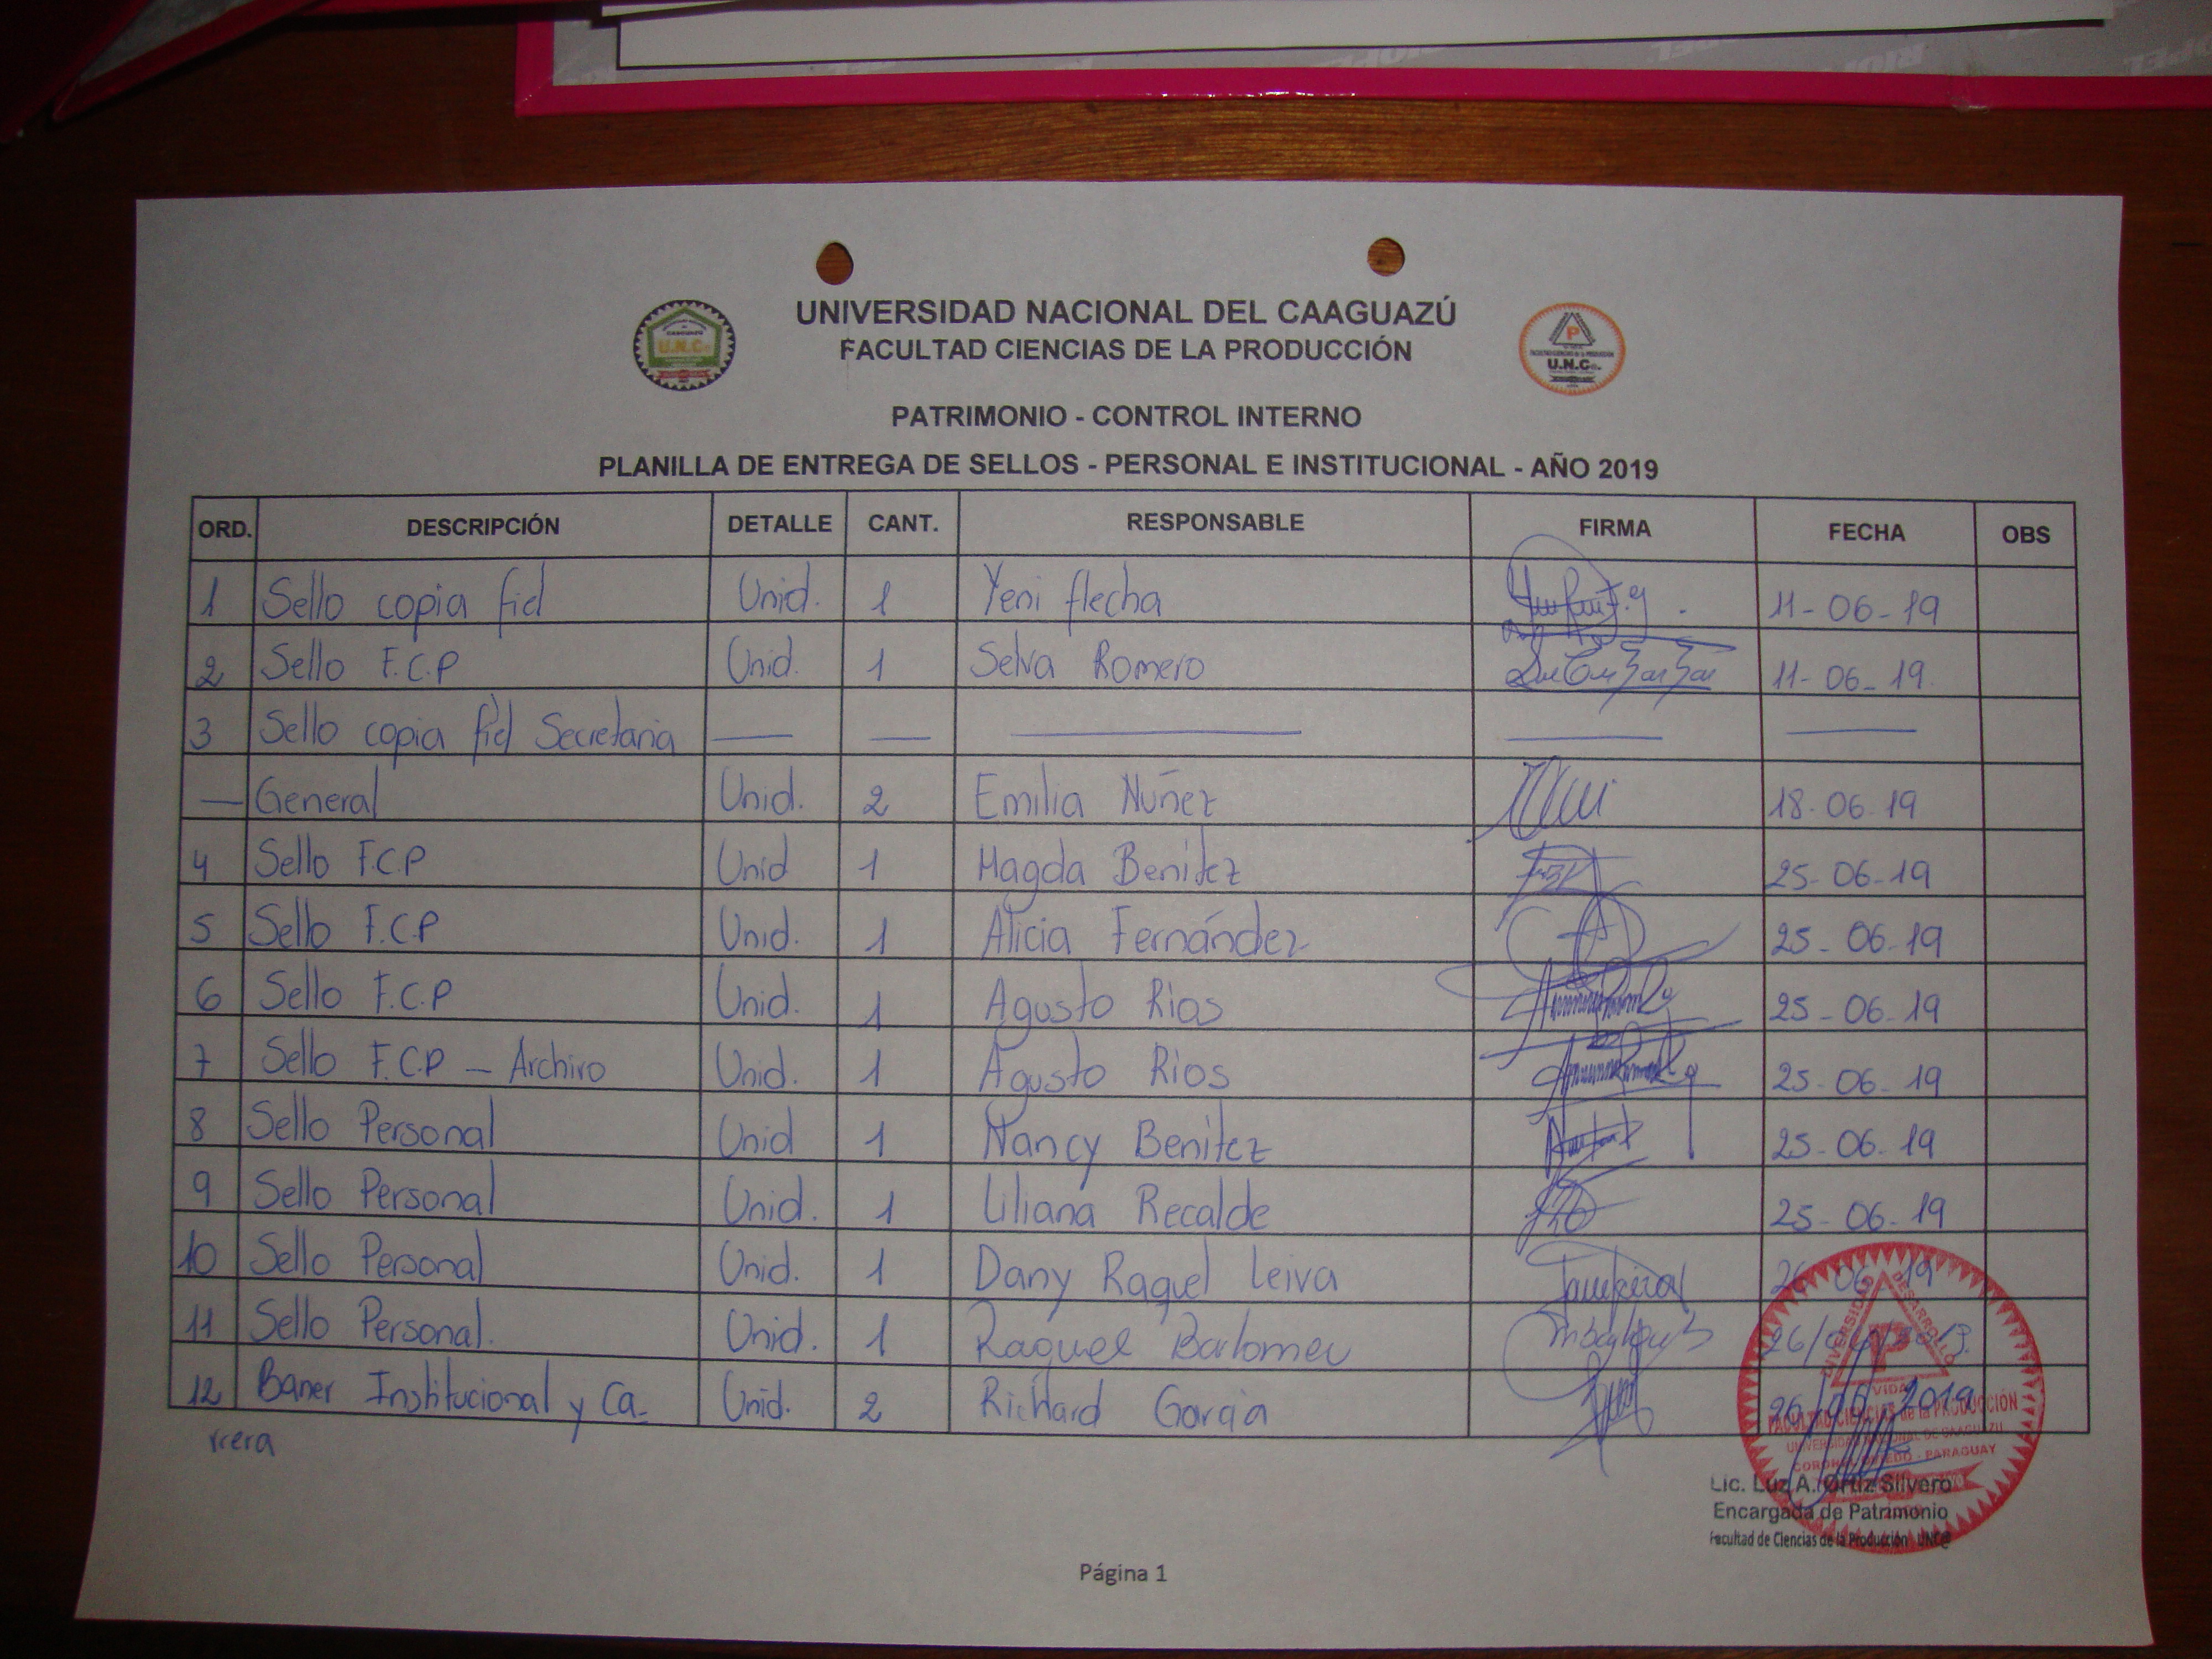 UNIVERSIDAD NACIONAL DEL CAAGUAZÚ
FACULTAD CIENCIAS DE LA PRODUCCIÓN
U.N.C@.
P
U.N.C@.
PATRIMONIO - CONTROL INTERNO
PLANILLA DE ENTREGA DE SELLOS - PERSONAL E INSTITUCIONAL - AÑO 2019
ORD. DESCRIPCIÓN DETALLE CANT. RESPONSABLE FIRMA FECHA OBS
1 Sello copia fiel Unid. 1 Yeni flecha 11-06-19
2 Sello F.C.P Unid. 1 Selva Romero 11-06-19.
3 Sello copia fiel Secretaria — — — — —
— General Unid. 2 Emilia Núñez 18-06-19
4 Sello F.C.P Unid 1 Magda Benítez 25-06-19
5 Sello F.C.P Unid. 1 Alicia Fernández 25-06-19
6 Sello F.C.P Unid. 1 Agusto Rios 25-06-19
7 Sello F.C.P — Archivo Unid. 1 Agusto Rios 25-06-19
8 Sello Personal Unid 1 Nancy Benítez 25-06-19
9 Sello Personal Unid. 1 Liliana Recalde 25-06-19
10 Sello Personal Unid. 1 Dany Raquel Leiva 26-06-19
11 Sello Personal. Unid. 1 Raquel Bartomeu
12 Baner Institucional y Ca- Unid. 2 Richard Garcia 2019
rrera
DIVERSIDAD DESARROLLO
P
VIDA
FACULTAD CIENCIAS de la PRODUCCIÓN
UNIVERSIDAD NACIONAL DE CAAGUAZÚ
CORONEL OVIEDO - PARAGUAY
Lic. Luz A. Ortiz Silvero
Encargada de Patrimonio
Facultad de Ciencias de la Producción UNC@
Página 1